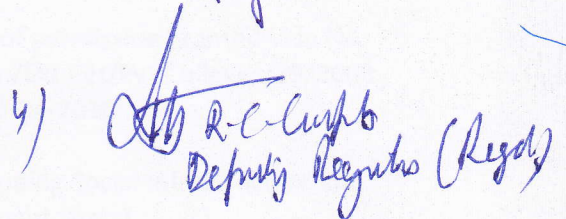 4) R.C. Gupta
Deputy Registrar (Regd)